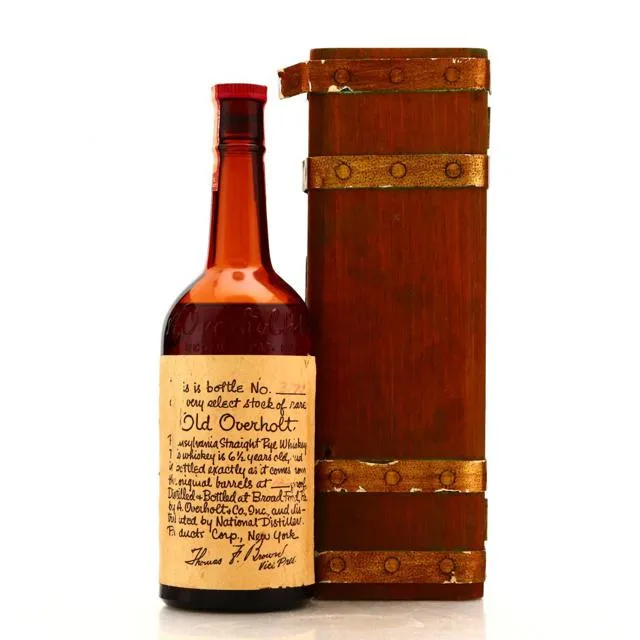 Overholt
is is bottle No.
very select stock of rare
Old Overholt,
nsylvania Straight Rye Whiskey
s whiskey is 6½ years old,
bottled exactly as it comes from
the original barrels at ___ proof
Distilled & Bottled at Broad Ford, Pa.
by A. Overholt & Co., Inc., and dis-
tributed by National Distillers
Products Corp., New York
Thomas F. Brown
Vice Pres.